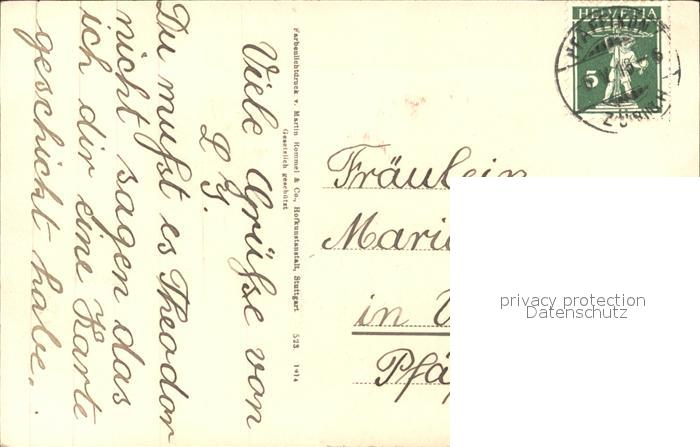 Viele Grüße von
L. G.
Du mußt es Theodor
nicht sagen das
ich dir eine Karte
geschickt habe.
Farbenlichtdruck v. Martin Rommel & Co., Hofkunstanstalt, Stuttgart 523 1914
Gesetzlich geschützt
HELVETIA
5
ZÜRICH
Fräulein
Marie
in
Pfä
privacy protection
Datenschutz